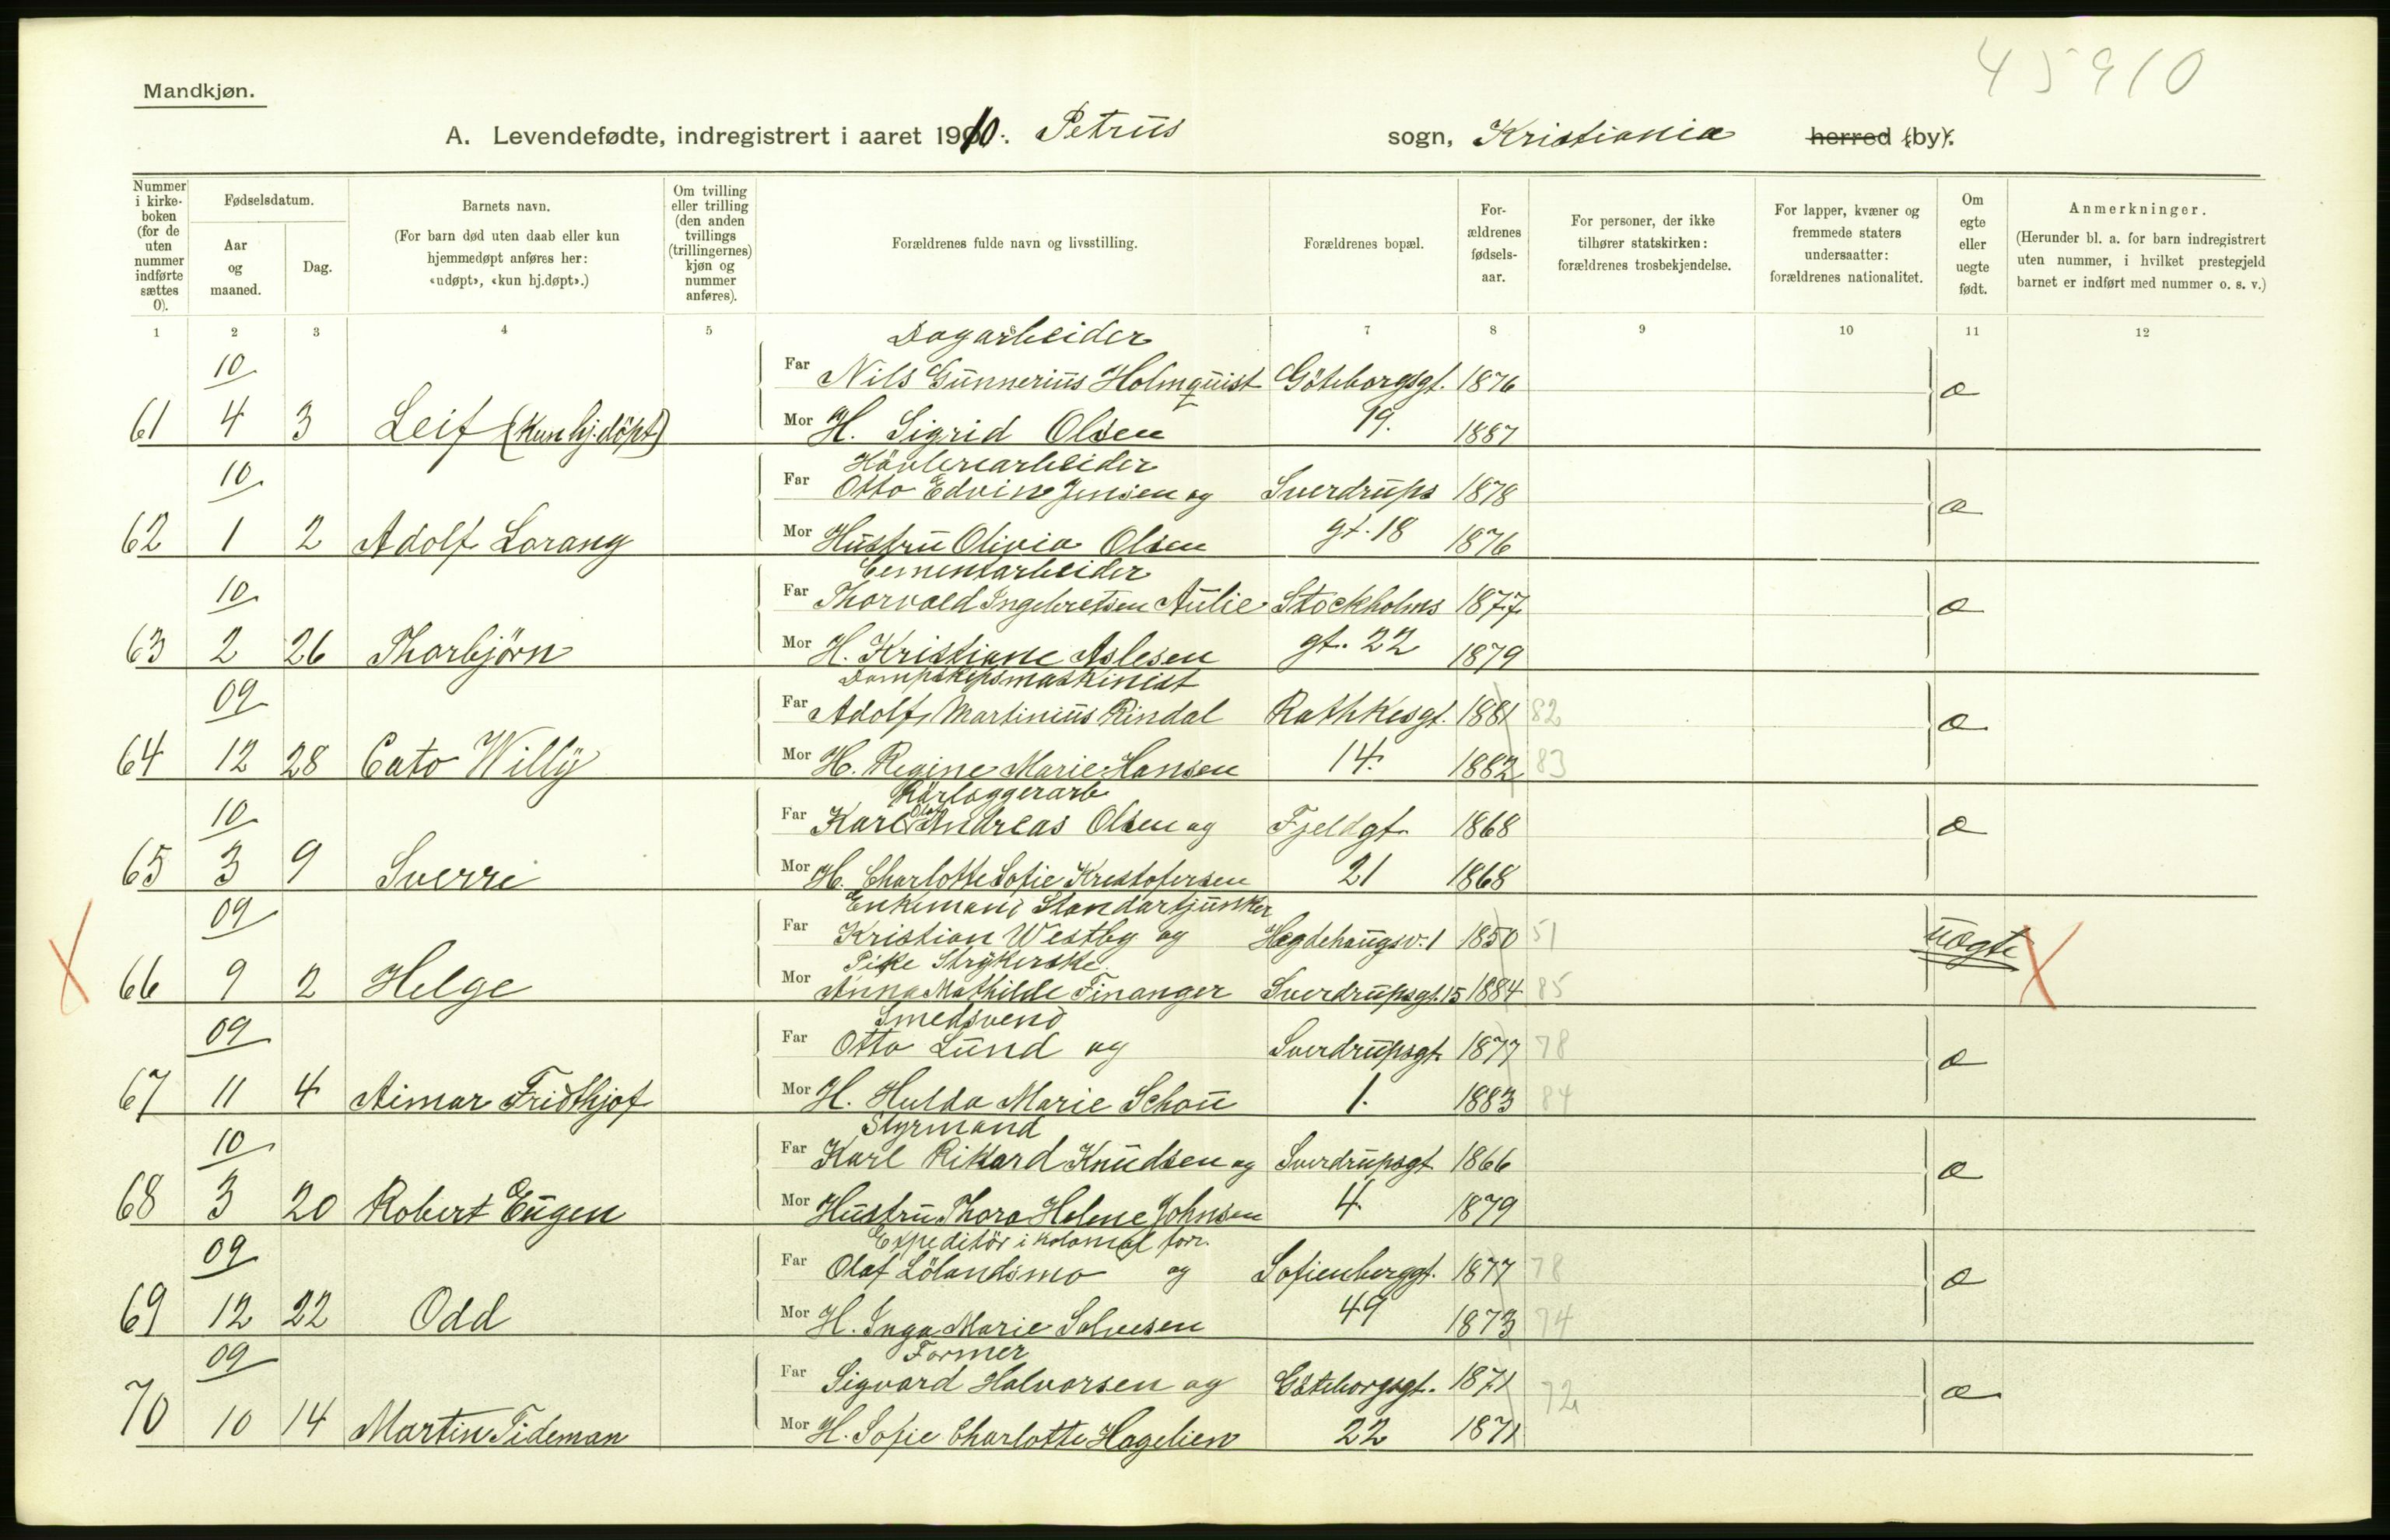 45910
Mandkjøn.
A. Levendefødte, indregistrert i aaret 1910. Petrus sogn, Kristiania herred (by).
Nummer i kirkeboken (for de uten nummer indførte sættes 0).
Fødselsdatum.
Aar og maaned.
Dag.
Barnets navn.
(For barn død uten daab eller kun hjemmedøpt anføres her: «udøpt», «kun hj.døpt».)
Om tvilling eller trilling (den anden tvillings (trillingernes) kjøn og nummer anføres).
Forældrenes fulde navn og livsstilling.
Forældrenes bopæl.
Forældrenes fødselsaar.
For personer, der ikke tilhører statskirken: forældrenes trosbekjendelse.
For lapper, kvæner og fremmede staters undersaatter: forældrenes nationalitet.
Om egte eller uegte født.
Anmerkninger.
(Herunder bl. a. for barn indregistrert uten nummer, i hvilket prestegjeld barnet er indført med nummer o. s. v.)
1 2 3 4 5 6 7 8 9 10 11 12
Dagarbeider
10 Far Nils Gunnerius Holmquist Göteborgsgt. 1876 æ
61 4 3 Leif (Kun hj.döpt) Mor H. Sigrid Olsen 19. 1887
Hövlerearbeider
10 Far Otto Edvin Jensen og Sverdrups 1878 æ
62 1 2 Adolf Lorang Mor Hustru Olivia Olsen gt. 18 1876
Cementarbeider
10 Far Thorvald Ingebretsen Aulie Stockholms 1877 æ
63 2 26 Thorbjörn Mor H. Kristiane Aslesen gt. 22 1879
Dampskipsmaskinist
09 Far Adolf Martinius Rindal Rathkesgt. 1881 82 æ
64 12 28 Cato Willy Mor H. Regine Marie Hansen 14. 1882 83
Rörlæggerarb
10 Far Karl Olaf Andreas Olsen og Fjeldgt. 1868 æ
65 3 9 Sverre Mor H. Charlotte Sofie Krestofersen 21 1868
Enkemand Standartjunker
09 Far Kristian Westby og Hegdehaugsv. 1 1850 51 uægte X
Pike Strykerske
X 66 9 2 Helge Mor Anna Mathilde Finanger Sverdrupsgt. 15 1884 85
Smedsvend
09 Far Otto Lund og Sverdrupsgt. 1877 78 æ
67 11 4 Aimar Fridthjof Mor H. Hulda Marie Schou 1. 1883 84
Styrmand
10 Far Karl Rikard Knudsen og Sverdrupsgt 1866 æ
68 3 20 Robert Eugen Mor Hustru Thora Helene Johnsen 4 1879
Expeditör i kolonial forr.
09 Far Olaf Lölandsmo og Sofienberggt. 1877 78 æ
69 12 22 Odd Mor H. Inga Marie Solvesen 49 1873 74
Former
09 Far Sigvard Halvorsen og Göteborgsgt. 1871 72 æ
70 10 14 Martin Tideman Mor H. Sofie Charlotte Hagelien 22 1871